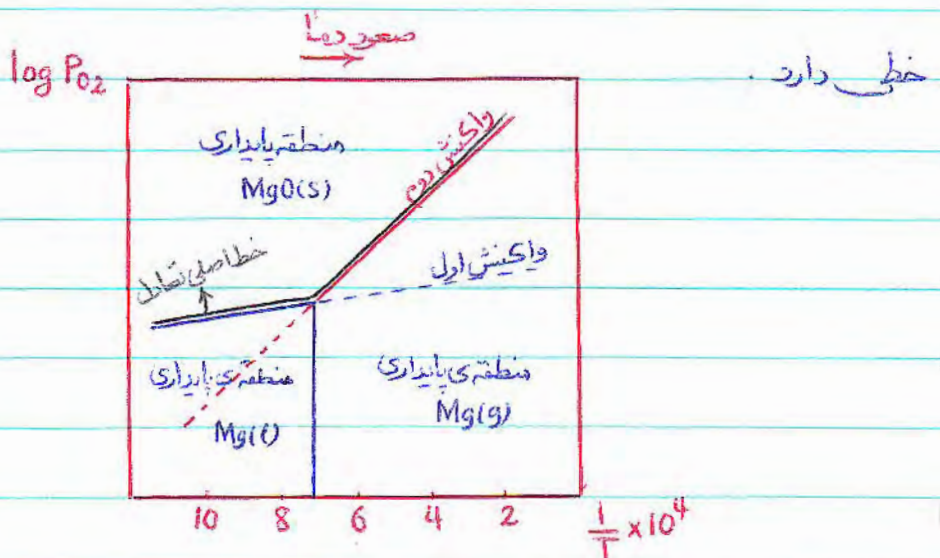 صعود دما
log PO2
خطی دارد.
منطقه پایداری
MgO(s)
واکنش دوم
خط اصلی تعادل
واکنش اول
منطقه‌ی پایداری
Mg(l)
منطقه‌ی پایداری
Mg(g)
10 8 6 4 2
1/T ×10⁴